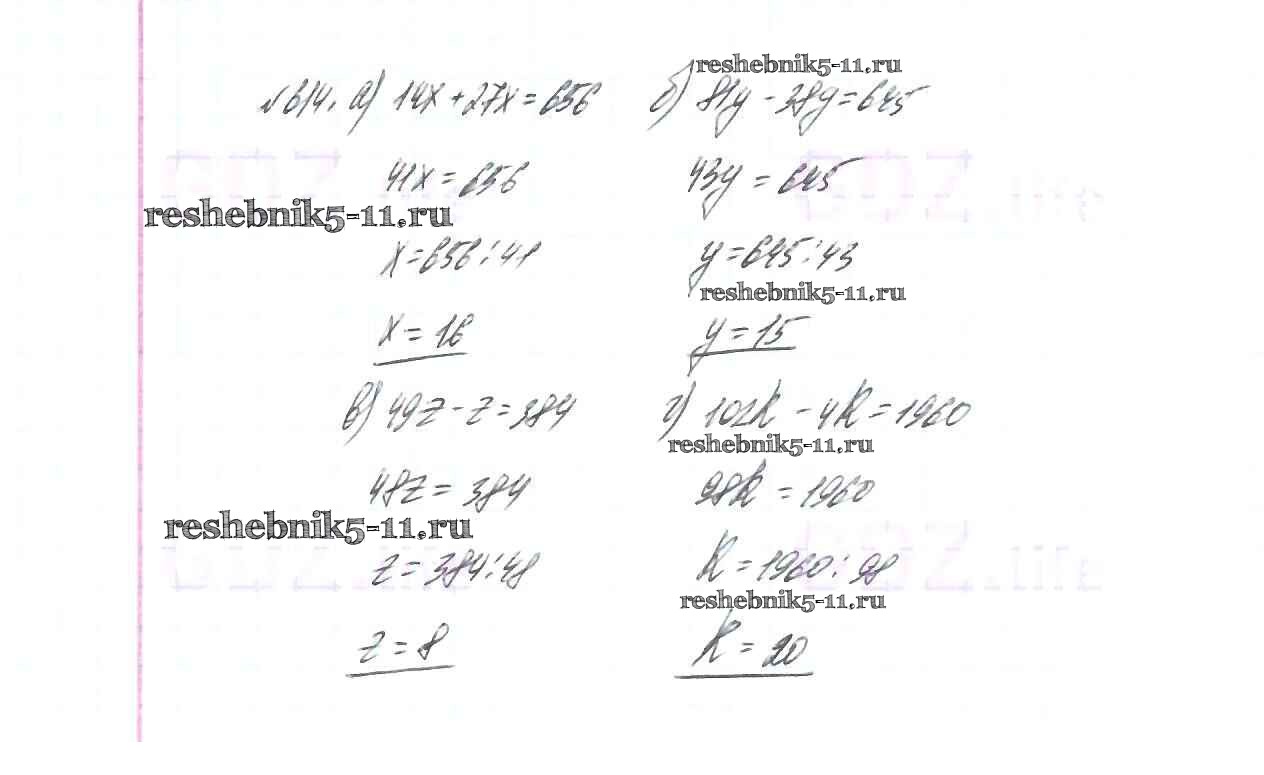 reshebnik5-11.ru
№614. а) 14x + 27x = 656
б) 81y - 38y = 645
41x = 656
43y = 645
reshebnik5-11.ru
x = 656 : 41
y = 645 : 43
reshebnik5-11.ru
x = 16
y = 15
в) 49z - z = 384
г) 102k - 4k = 1960
reshebnik5-11.ru
48z = 384
98k = 1960
reshebnik5-11.ru
z = 384 : 48
k = 1960 : 98
reshebnik5-11.ru
z = 8
k = 20